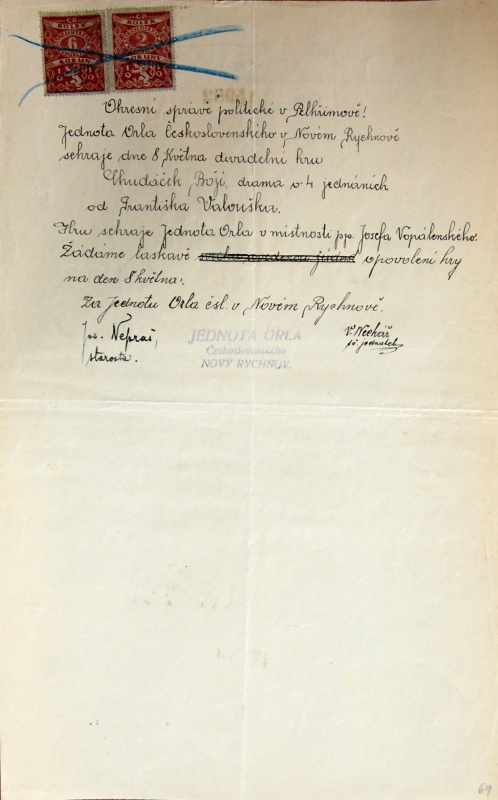 KOLEK KOLEK
6 2
KORUNY
Okresní správě politické v Pelhřimově!
Jednota Orla Československého v Novém Rychnově
sehraje dne 8 Května divadelní hru
Chudáček Boží, drama o 4 jednáních
od Františka Valouška.
Hru sehraje Jednota Orla v místnosti pp. Josefa Vopálenského.
Žádáme laskavě o povolení hry
na den 8 května.
Za Jednotu Orla čsl. v Novém Rychnově.
Jos. Nepraš,
starosta.
JEDNOTA ORLA
Československého
NOVÝ RYCHNOV.
jednatel
69